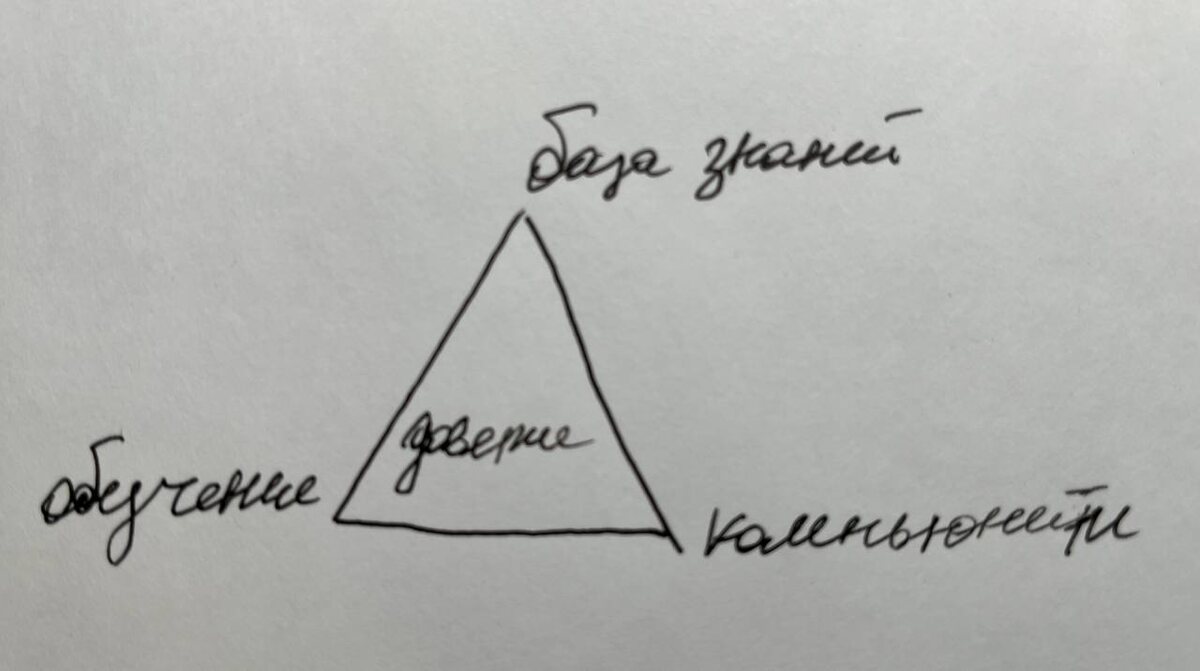 база знаний
доверие
обучение
комньюнити